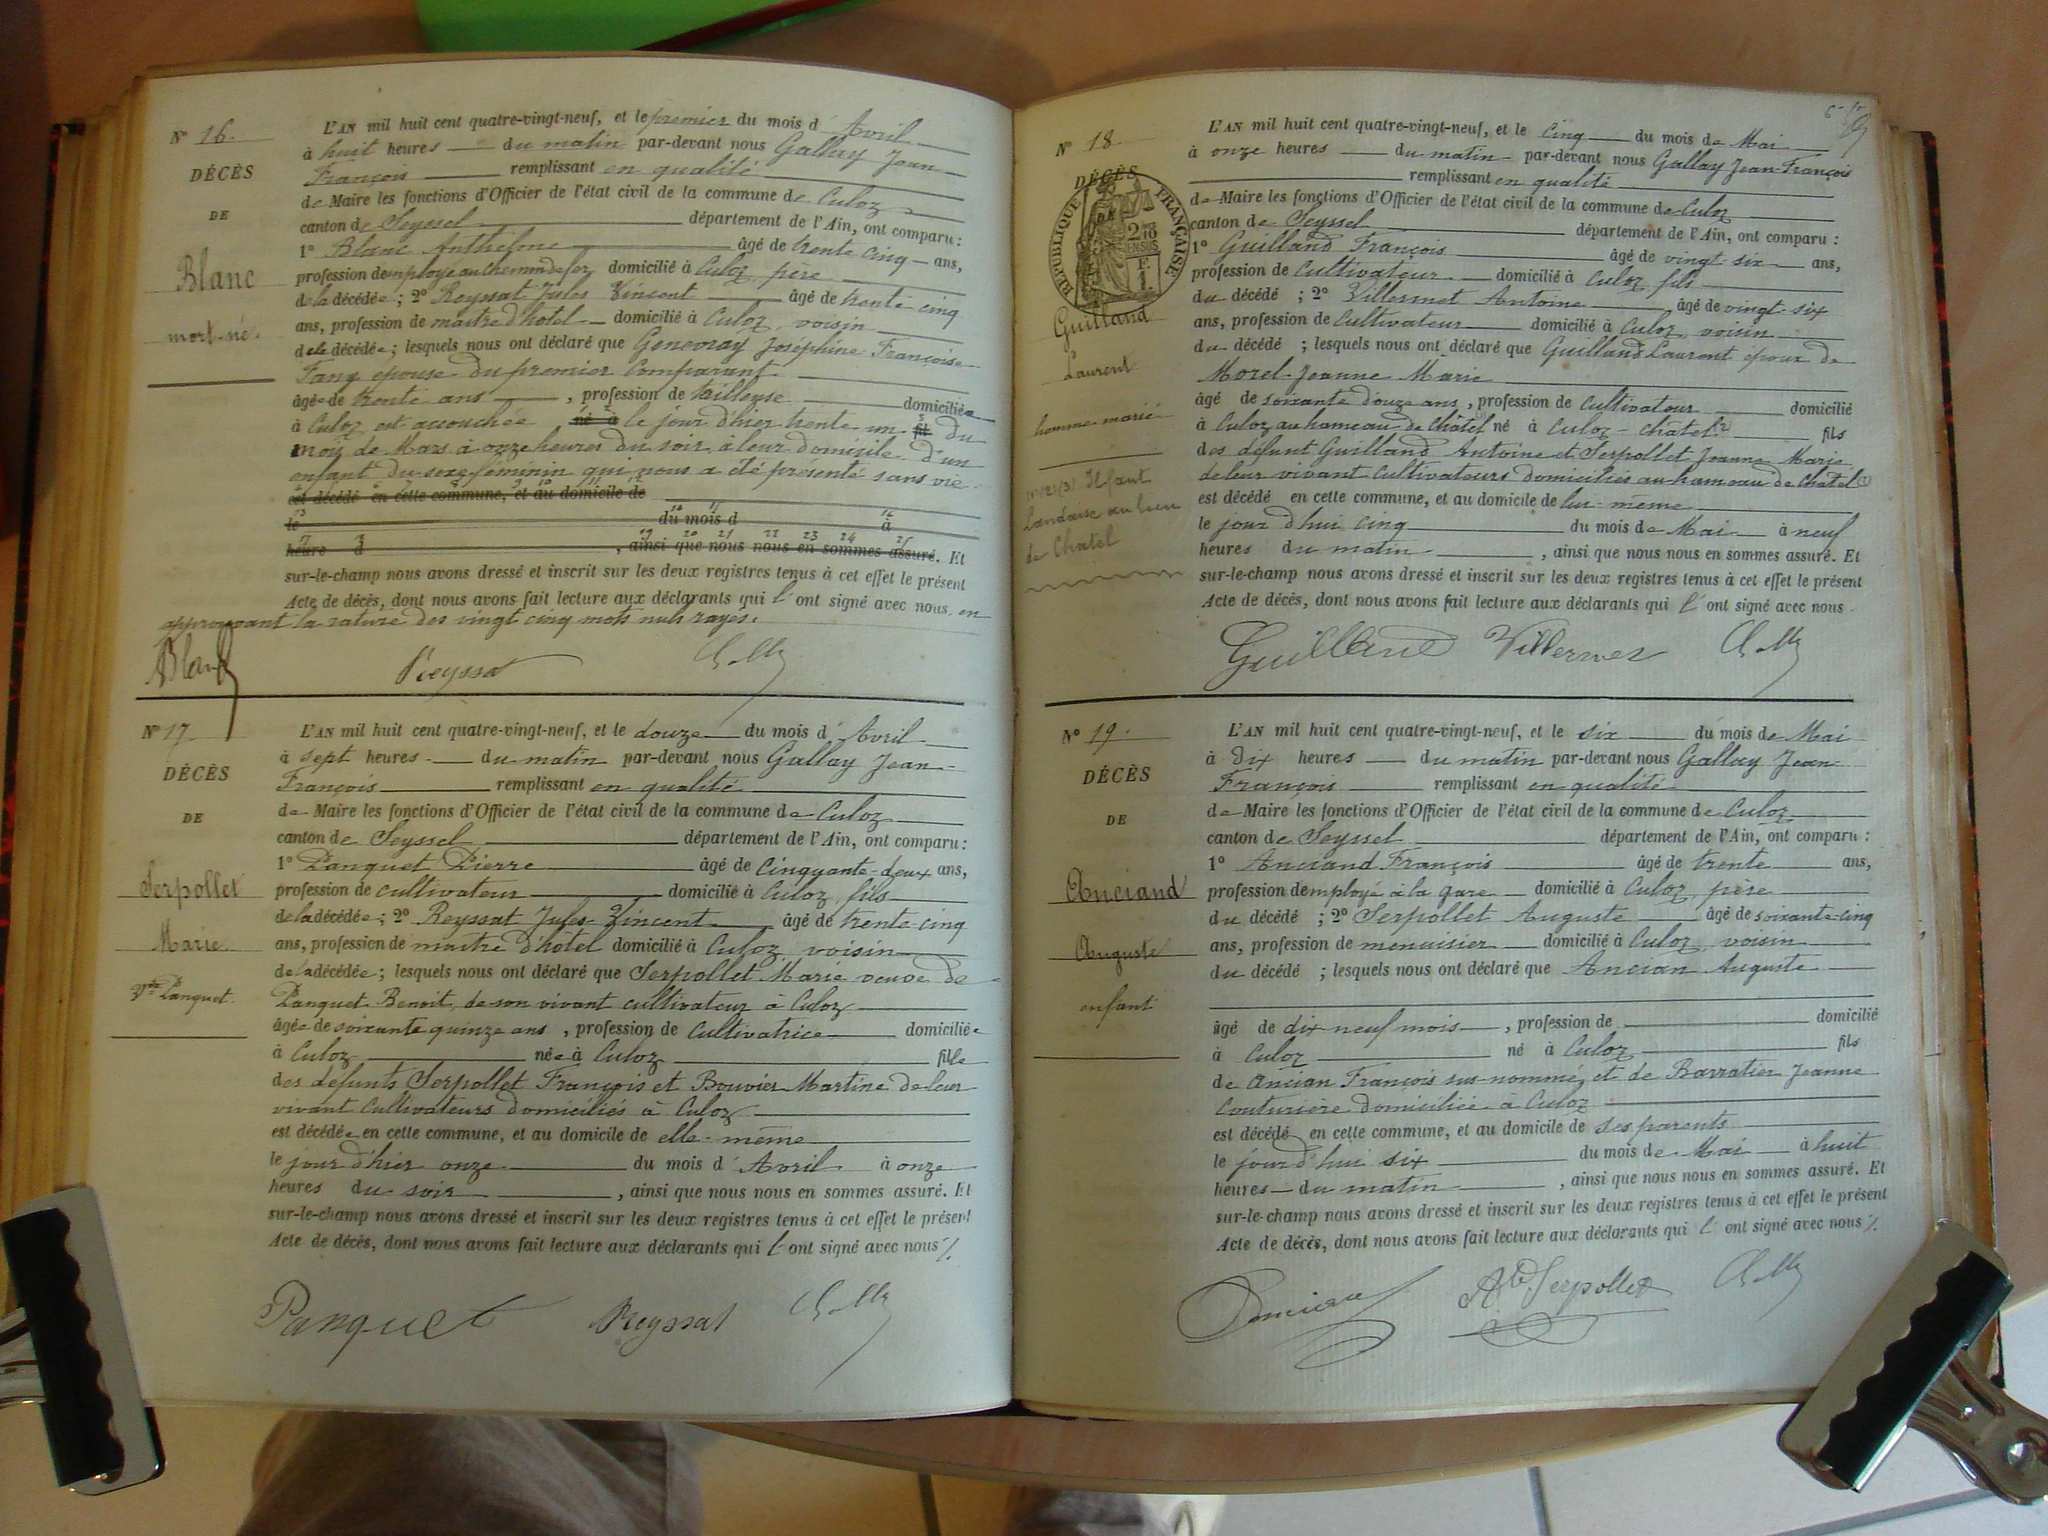 N° 16.
DÉCÈS
DE
Blanc
mort-né.
L'AN mil huit cent quatre-vingt-neuf, et le premier du mois d'Avril
à huit heures du matin par-devant nous Gallay Jean
François remplissant en qualité
de Maire les fonctions d'Officier de l'état civil de la commune de Culoz
canton de Seyssel département de l'Ain, ont comparu :
1° Blanc Anthelme âgé de trente cinq ans,
profession d'employé au chemin de fer domicilié à Culoz, père
de la décédée ; 2° Reyssat Jules Vincent âgé de trente cinq
ans, profession de maître d'hôtel domicilié à Culoz, voisin
de la décédée ; lesquels nous ont déclaré que Genevray Joséphine Françoise
Fany epouse du premier Comparant
âgée de trente ans, profession de tailleuse domiciliée
à Culoz est accouchée né à le jour d'hier trente un fil du
mois de Mars à onze heures du soir, à leur domicile d'un
enfant du sexe féminin qui nous a été présenté sans vie
est décédé en cette commune, et au domicile de
le du mois d à
heure d , ainsi que nous nous en sommes assuré. Et
sur-le-champ nous avons dressé et inscrit sur les deux registres tenus à cet effet le présent
Acte de décès, dont nous avons fait lecture aux déclarants qui l'ont signé avec nous en
approuvant la rature des vingt cinq mots nuls rayés.
Blanc Reyssat
N° 17
DÉCÈS
DE
Serpollet
Marie
Vve Panquet
L'AN mil huit cent quatre-vingt-neuf, et le douze du mois d'Avril
à sept heures du matin par-devant nous Gallay Jean-
François remplissant en qualité
de Maire les fonctions d'Officier de l'état civil de la commune de Culoz
canton de Seyssel département de l'Ain, ont comparu :
1° Panquet Pierre âgé de Cinquante-deux ans,
profession de cultivateur domicilié à Culoz, fils
de la décédée ; 2° Reyssat Jules-Vincent âgé de trente cinq
ans, profession de maître d'hôtel domicilié à Culoz, voisin
de la décédée ; lesquels nous ont déclaré que Serpollet Marie veuve de
Panquet Benoit, de son vivant cultivateur à Culoz
âgée de soixante quinze ans, profession de Cultivatrice domiciliée
à Culoz née à Culoz fille
des défunts Serpollet François et Bouvier Martine de leur
vivant Cultivateurs domiciliés à Culoz
est décédée en cette commune, et au domicile de elle-même
le jour d'hier onze du mois d'Avril à onze
heures du soir, ainsi que nous nous en sommes assuré. Et
sur-le-champ nous avons dressé et inscrit sur les deux registres tenus à cet effet le présent
Acte de décès, dont nous avons fait lecture aux déclarants qui l'ont signé avec nous %.
Panquet Reyssat
N° 18.
DÉCÈS
RÉPUBLIQUE FRANÇAISE
Guilland
Laurent
homme marié
(1) (2) (3) Il faut
Landaise au lieu
de Chatel
L'AN mil huit cent quatre-vingt-neuf, et le cinq du mois de Mai
à onze heures du matin par-devant nous Gallay Jean-François
remplissant en qualité
de Maire les fonctions d'Officier de l'état civil de la commune de Culoz
canton de Seyssel département de l'Ain, ont comparu :
1° Guilland François âgé de vingt-six ans,
profession de Cultivateur domicilié à Culoz, fils
du décédé ; 2° Villermet Antoine âgé de vingt-six
ans, profession de Cultivateur domicilié à Culoz, voisin
du décédé ; lesquels nous ont déclaré que Guilland Laurent epoux de
Morel Jeanne Marie
âgé de soixante douze ans, profession de Cultivateur domicilié
à Culoz au hameau de Châtel né à Culoz-Châtel (2) fils
des défunt Guilland Antoine et Serpollet Jeanne Marie
de leur vivant Cultivateurs domiciliés au hameau de Châtel (3)
est décédé en cette commune, et au domicile de lui-même
le jour d'hui cinq du mois de Mai à neuf
heures du matin, ainsi que nous nous en sommes assuré. Et
sur-le-champ nous avons dressé et inscrit sur les deux registres tenus à cet effet le présent
Acte de décès, dont nous avons fait lecture aux déclarants qui l'ont signé avec nous.
Guilland Villermet
N° 19.
DÉCÈS
DE
Anciand
Auguste
enfant
L'AN mil huit cent quatre-vingt-neuf, et le six du mois de Mai
à Dix heures du matin par-devant nous Gallay Jean-
François remplissant en qualité
de Maire les fonctions d'Officier de l'état civil de la commune de Culoz
canton de Seyssel département de l'Ain, ont comparu :
1° Anciand François âgé de trente ans,
profession d'employé à la gare domicilié à Culoz, père
du décédé ; 2° Serpollet Auguste âgé de soixante-cinq
ans, profession de menuisier domicilié à Culoz, voisin
du décédé ; lesquels nous ont déclaré que Ancian Auguste
âgé de dix neuf mois, profession de domicilié
à Culoz né à Culoz fils
de Ancian François sus-nommé, et de Barratier Jeanne
Couturière domiciliée à Culoz
est décédé en cette commune, et au domicile de ses parents
le jour d'hui six du mois de Mai à huit
heures du matin, ainsi que nous nous en sommes assuré. Et
sur-le-champ nous avons dressé et inscrit sur les deux registres tenus à cet effet le présent
Acte de décès, dont nous avons fait lecture aux déclarants qui l'ont signé avec nous %.
Ate Serpollet